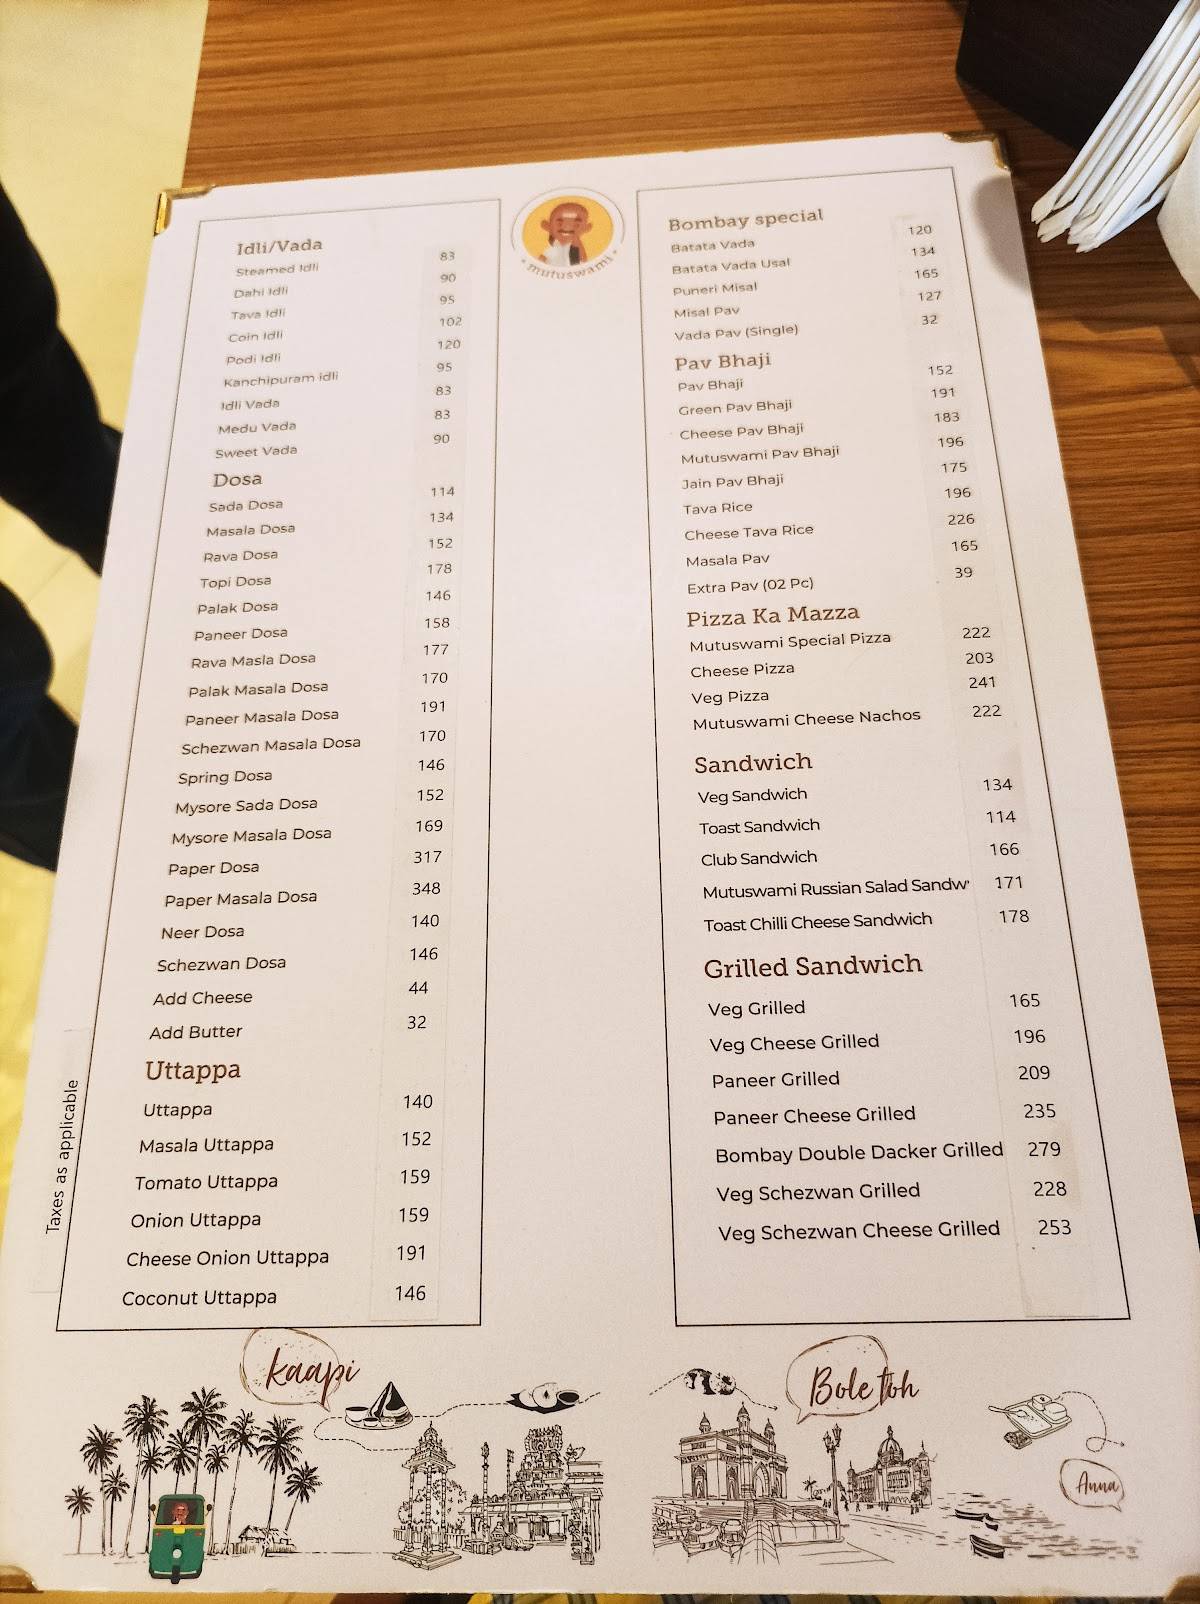 mutuswami
Idli/Vada
Steamed Idli 83
Dahi Idli 90
Tava Idli 95
Coin Idli 102
Podi Idli 120
Kanchipuram idli 95
Idli Vada 83
Medu Vada 83
Sweet Vada 90
Dosa
Sada Dosa 114
Masala Dosa 134
Rava Dosa 152
Topi Dosa 178
Palak Dosa 146
Paneer Dosa 158
Rava Masla Dosa 177
Palak Masala Dosa 170
Paneer Masala Dosa 191
Schezwan Masala Dosa 170
Spring Dosa 146
Mysore Sada Dosa 152
Mysore Masala Dosa 169
Paper Dosa 317
Paper Masala Dosa 348
Neer Dosa 140
Schezwan Dosa 146
Add Cheese 44
Add Butter 32
Uttappa
Uttappa 140
Masala Uttappa 152
Tomato Uttappa 159
Onion Uttappa 159
Cheese Onion Uttappa 191
Coconut Uttappa 146
Taxes as applicable
Bombay special
Batata Vada 120
Batata Vada Usal 134
Puneri Misal 165
Misal Pav 127
Vada Pav (Single) 32
Pav Bhaji
Pav Bhaji 152
Green Pav Bhaji 191
Cheese Pav Bhaji 183
Mutuswami Pav Bhaji 196
Jain Pav Bhaji 175
Tava Rice 196
Cheese Tava Rice 226
Masala Pav 165
Extra Pav (02 Pc) 39
Pizza Ka Mazza
Mutuswami Special Pizza 222
Cheese Pizza 203
Veg Pizza 241
Mutuswami Cheese Nachos 222
Sandwich
Veg Sandwich 134
Toast Sandwich 114
Club Sandwich 166
Mutuswami Russian Salad Sandw 171
Toast Chilli Cheese Sandwich 178
Grilled Sandwich
Veg Grilled 165
Veg Cheese Grilled 196
Paneer Grilled 209
Paneer Cheese Grilled 235
Bombay Double Dacker Grilled 279
Veg Schezwan Grilled 228
Veg Schezwan Cheese Grilled 253
Kaapi
Bole toh
Anna